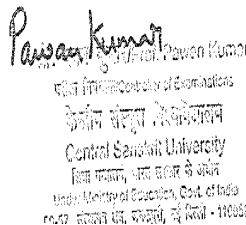 Pawan Kumar
Prof. Pawan Kumar
परीक्षा नियन्त्रक/Controller of Examinations
केन्द्रीय संस्कृत विश्वविद्यालय
Central Sanskrit University
शिक्षा मन्त्रालय, भारत सरकार के अधीन
Under Ministry of Education, Govt. of India
56-57, संस्थागत क्षेत्र, जनकपुरी, नई दिल्ली - 110058